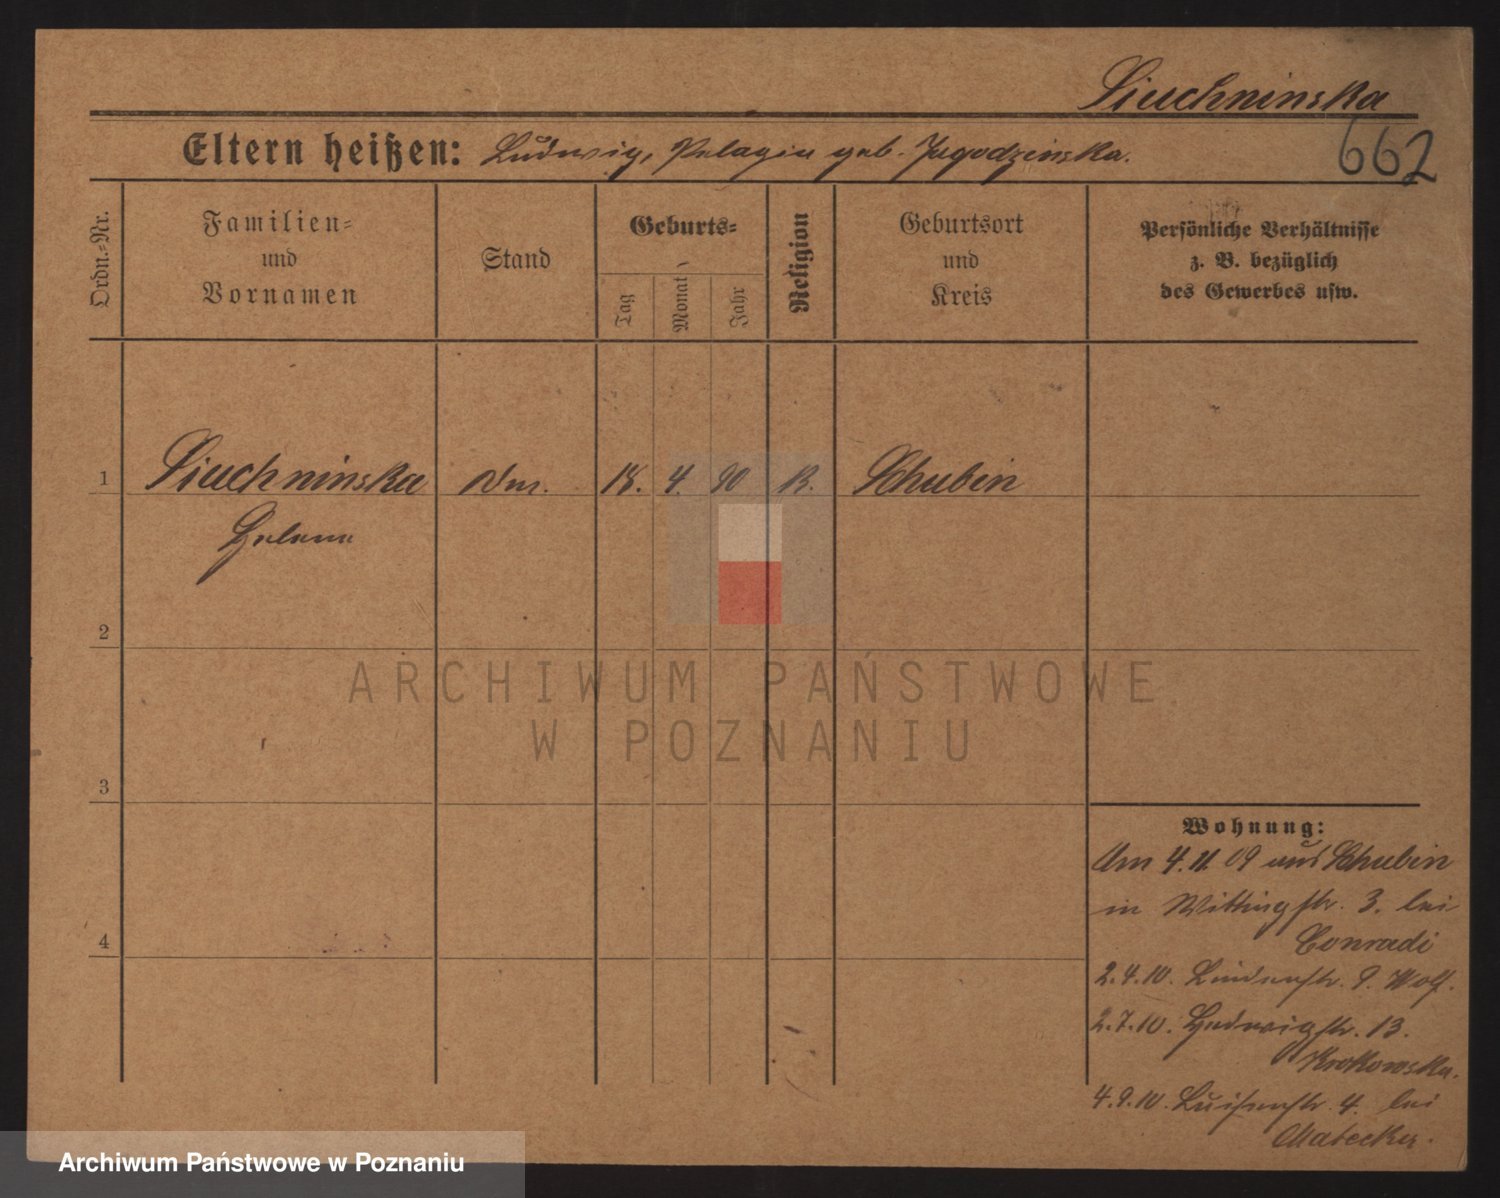 Siuchninska
662
Eltern heißen: Ludwig, Pelagia geb. Jagodzinska.
Ordn.-Nr.
Familien-
und
Vornamen
Stand
Geburts-
Tag
Monat
Jahr
Religion
Geburtsort
und
Kreis
Persönliche Verhältnisse
z. B. bezüglich
des Gewerbes usw.
1 Siuchninska 18. 4. 90 K. Schubin
Helena
2
3
4
Wohnung:
Am 4.11.09 aus Schubin
in Wittingstr. 3. bei
Conradi
2.4.10. Lindenstr. 9. Wolf.
2.7.10. Hedwigstr. 13.
Krokowska.
4.9.10. Luisenstr. 4. bei
ARCHIWUM PAŃSTWOWE
W POZNANIU
Archiwum Państwowe w Poznaniu